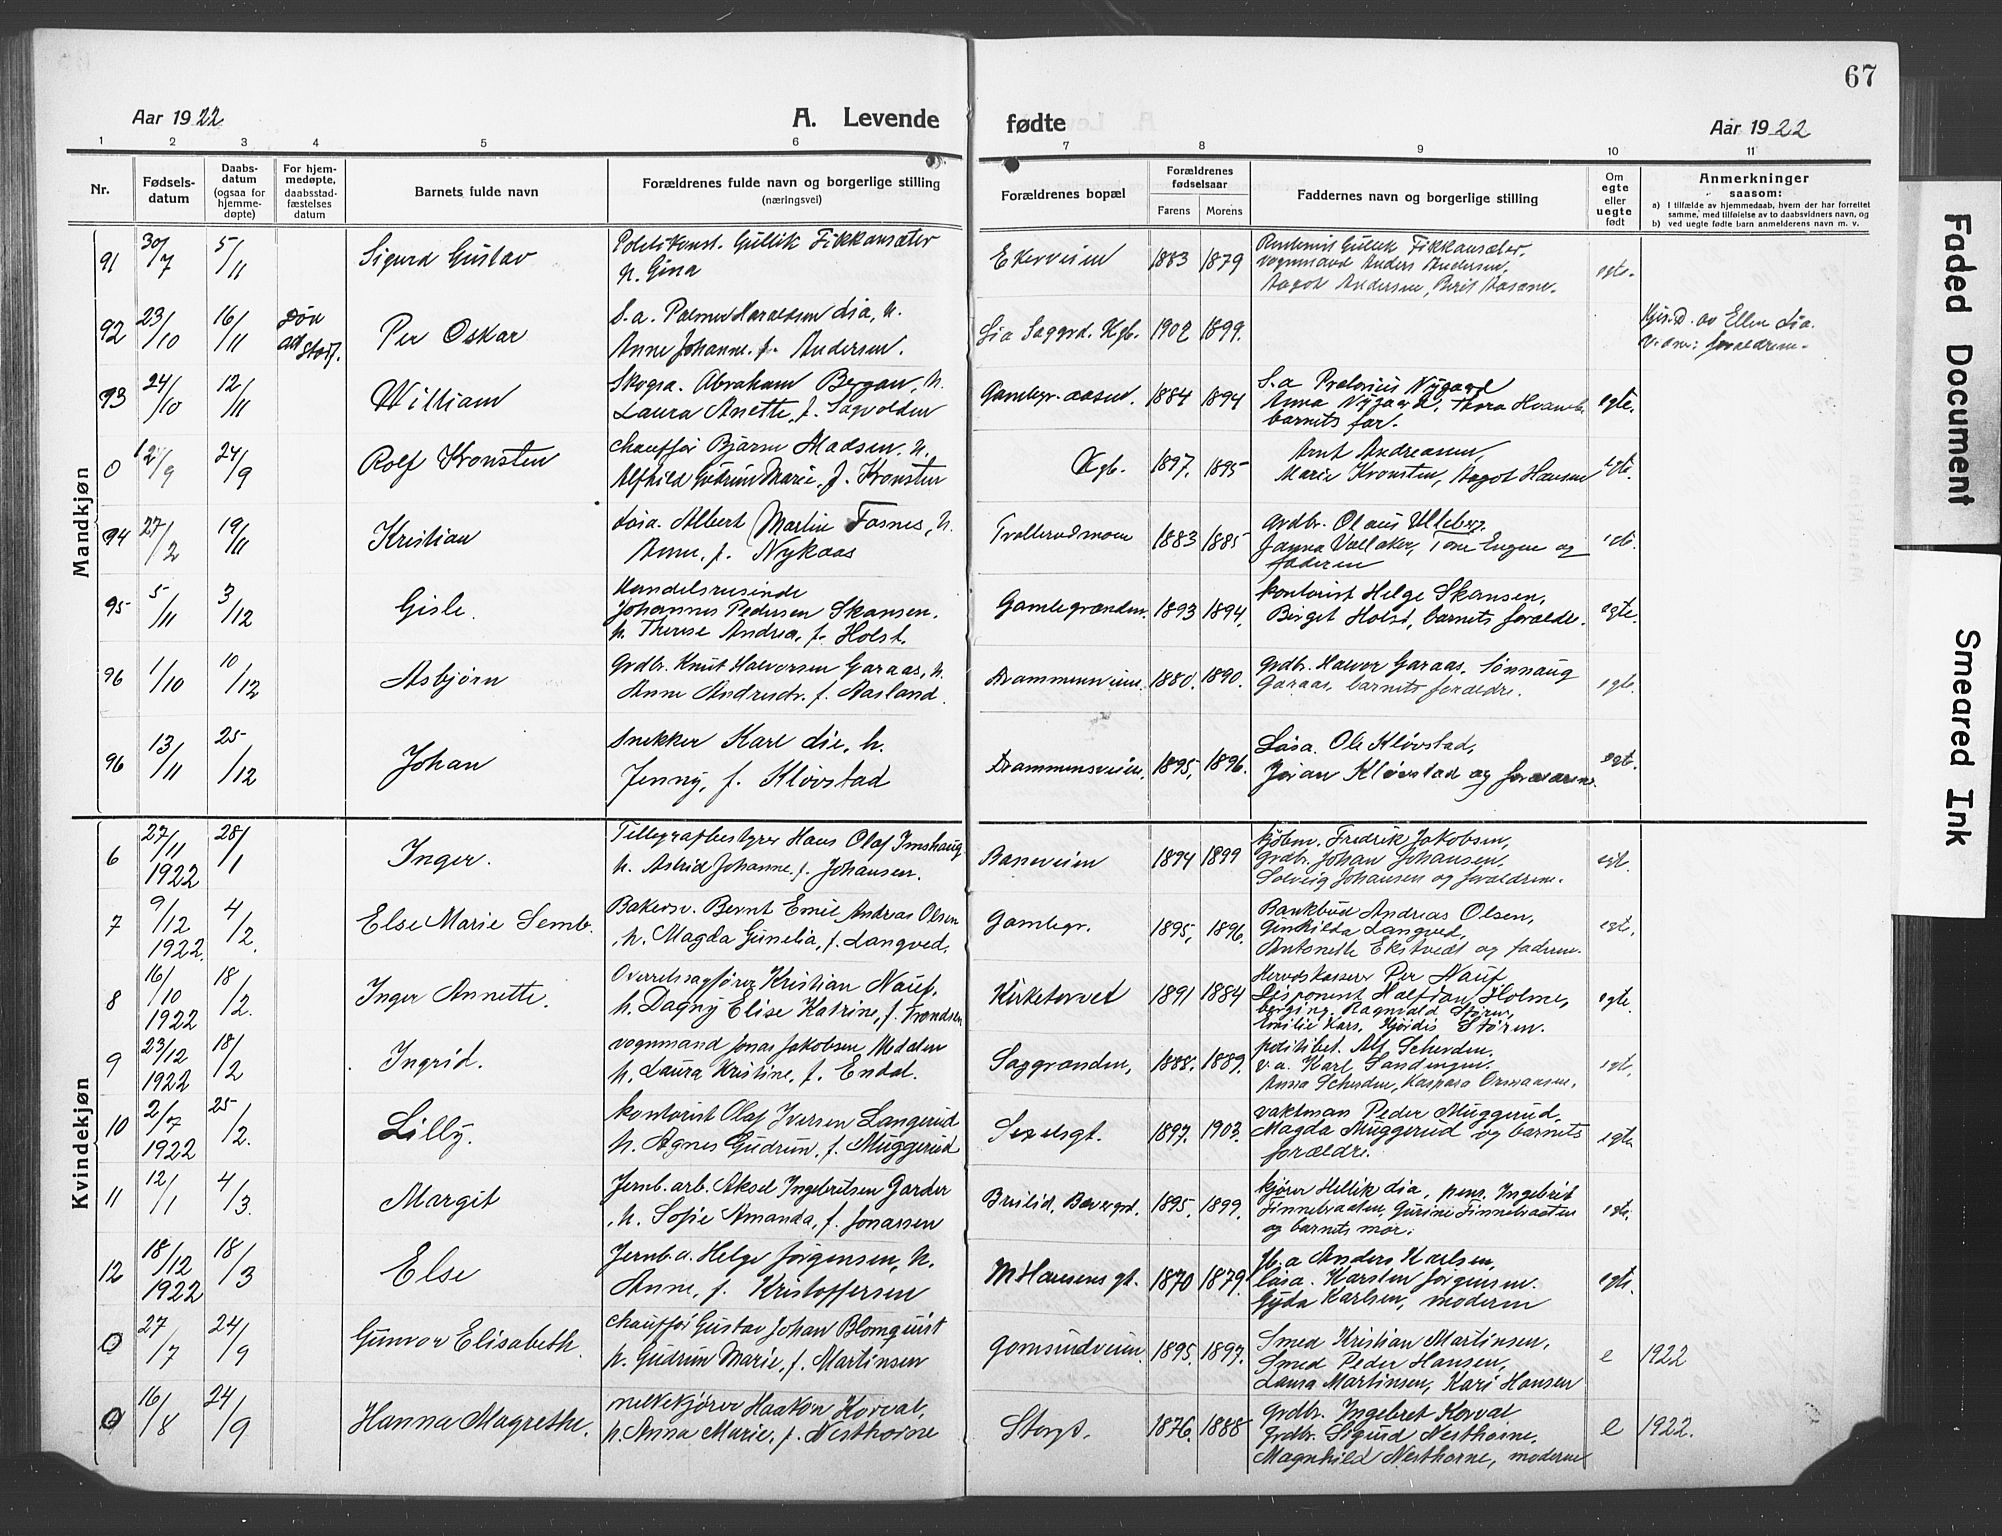 67
Aar 1922
A. Levende
fødte
Aar 1922
1 2 3 4 5 6 7 8 9 10 11
Nr.
Fødsels-
datum
Daabs-
datum
(ogsaa for
hjemme-
døpte)
For hjem-
medøpte,
daabsstad-
fæstelses
datum
Barnets fulde navn
Forældrenes fulde navn og borgerlige stilling
(næringsvei)
Forældrenes bopæl
Forældrenes
fødselsaar
Farens
Morens
Faddernes navn og borgerlige stilling
Om
egte
eller
uegte
født
Anmerkninger
saasom:
a) I tilfælde av hjemmedaab, hvem der har forrettet
samme, med tilføielse av to daabsvidners navn, og
b) ved uegte fødte barn anmelderens navn m. v.
Mandkjøn
91 30/7 5/11 Sigurd Gustav
Politikonst. Gullik Fikkansæter
h. Gina
Ekerveien 1883 1879
Gullik Fikkansæter,
vognmand Anders Andersen,
Aagot Andersen, Berit Aasane.
egte.
92 23/10 16/11 Død Per Oskar
S.a. Palmer Haraldsen Lia, h.
Anne Johanne f. Andersen.
Lia Saggrd. Kgb. 1902 1899.
Hj.D. av Ellen Lia.
Vidner: forældrene.
93 24/10 12/11 William
Skogsa. Abraham Bergan, h.
Laura Anette, f. Sagvolden
Gamlegr.aasen. 1884 1894
S.a Nygaard
Anna Nygaard, Thora
barnets far.
egte.
0 12/9 24/9 Rolf Kronsten
chauffør Bjarne Madsen. h.
Alfhild Gudrun Marie, f. Kronsten
Kgb. 1897. 1895
Arnt Andreasen,
Marie Kronsten, Aagot Hansen
egte.
94 27/2 19/11 Kristian
Løsa. Albert Martin Fosnes, h.
Anne, f. Nykaas
Trollerudmoen 1883 1885
grdbr. Olaus Ulleberg.
Janna Vallaker, Tone Engene og
faderen
95 5/11 3/12 Gisle.
Handelsreisende
Johannes Pedersen Skansen.
h. Therese Andrea, f. Holst.
Gamlegrænden. 1893 1894.
kontorist Helge Skansen,
Birget Holst, barnets forældre.
egte.
96 1/10 10/12 Asbjørn
Grdbr. Knut Halvorsen Garaas, h.
Anne Andresdr. f. Aasland.
Drammensveien. 1880. 1890.
grdbr. Halvor Garaas, Tønnaug
Garaas, barnets forældre.
egte.
96 13/11 25/12 Johan
Snekker Karl Lie, h.
Jenny, f. Kløvstad
Drammensveien. 1895, 1896.
Løsa. Ole Kløvstad,
Jøran Kløvstad og forældrene.
egt.
Kvindekjøn
6 27/11 1922 28/1 Inger.
Tellegrafbestyrer Hans Olaf Imshaug
h. Astrid Johanne, f. Johansen.
Baneveien 1894 1899
kjøbm. Fredrik Jakobsen,
grdbr. Johan Johansen,
Solveig Johansen og forældrene.
egt.
7 9/12 1922. 4/2. Else Marie Semb.
Bakersv. Bernt Emil Andreas Olsen
h. Magda Gunelia, f. Langved.
Gamlegr. 1895, 1896.
Bankbud Andreas Olsen,
Gunhilda Langved,
Antonette Ekstvedt og faderen.
egt.
8 16/10 1922 18/2. Inger Annette.
Overretssagfører Kristian Nauf,
h. Dagny Elise Katrine, f. Trondsen
Kirketorvet 1891 1884
Herredskasserer Per Nauf
Disponent Halfdan Holme,
berging. Ragnvald Støren,
Emilie Kars, Hjørdis Støren.
egte.
9 23/12 1922 18/2 Ingrid.
vognmand Jonas Jakobsen Moldien
h. Laura Kristine, f. Endal.
Saggrænden, 1888. 1889.
politibet. Alf Scherden.
v.a. Karl Sandengen.
Anna Scherden, Kaspara Ormaasen.
egt.
10 2/7 1922 25/2. Lilly.
kontorist Olaf Iversen Langerud
h. Agnes Gudrun, f. Muggerud
Sexelsgt. 1897. 1903.
vaktman Peder Muggerud,
Magda Muggerud og barnets
forældre.
egte
11 12/1 4/3. Margit
Jernb.arb. Aksel Ingebretsen Garder
h. Sofie Amanda, f. Jonassen
1895. 1899.
kjører Hellik Lia, pens. Ingebrit
Finnebraaten, Gurine Finnebraaten
og barnets mor.
egte.
12 18/12 1922 18/3 Else
Jernb.a. Helge Jørgensen, h.
Anne, f. Kristoffersen
M Hansens gt. 1870 1879
Jb.a Anders Karlsen,
løsa. Karsten Jørgensen.
Gyda Karlsen, moderen
egte.
0 27/7 24/9 Gunvor Elisabeth.
chauffør Gustav Johan Blomquist
h. Gudrun Marie, f. Martinsen
Gomsrudveien. 1895. 1897.
Smed Kristian Martinsen.
Smed Peder Hansen,
Laura Martinsen, Kari Hansen
e 1922
0 16/8 24/9 Hanna Magrethe.
melkekjører Haakon Korval,
h. Anna Marie, f. Nesthorne
Storgt. 1876. 1888
Grdbr. Ingebret Korval
grdbr. Sigurd Nesthorne,
Magnhild Nesthorne, moderen
e 1922.
Faded Document
Smeared Ink